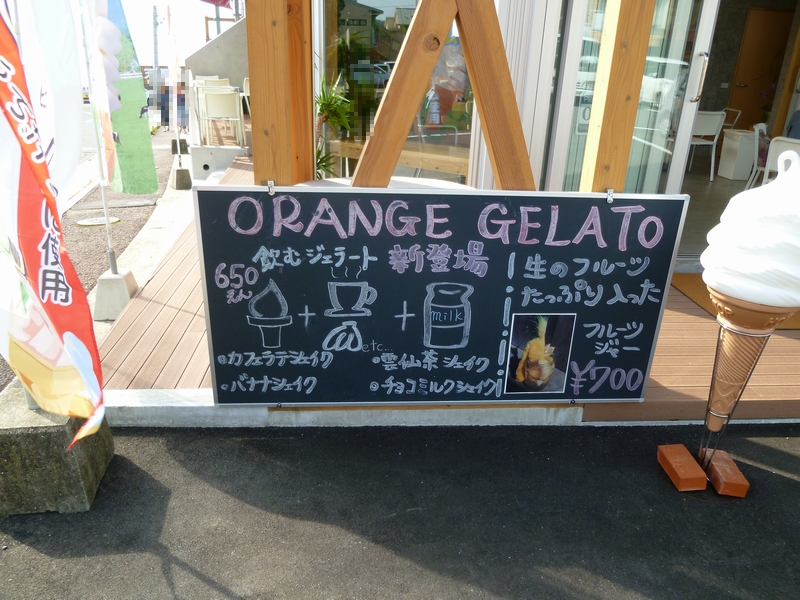 ORANGE GELATO
飲むジェラート 新登場
650えん
milk
etc...
•カフェラテシェイク
•バナナシェイク
•雲仙茶シェイク
•チョコミルクシェイク
生のフルーツ
たっぷり入った
フルーツ
ジャー
¥700
使用